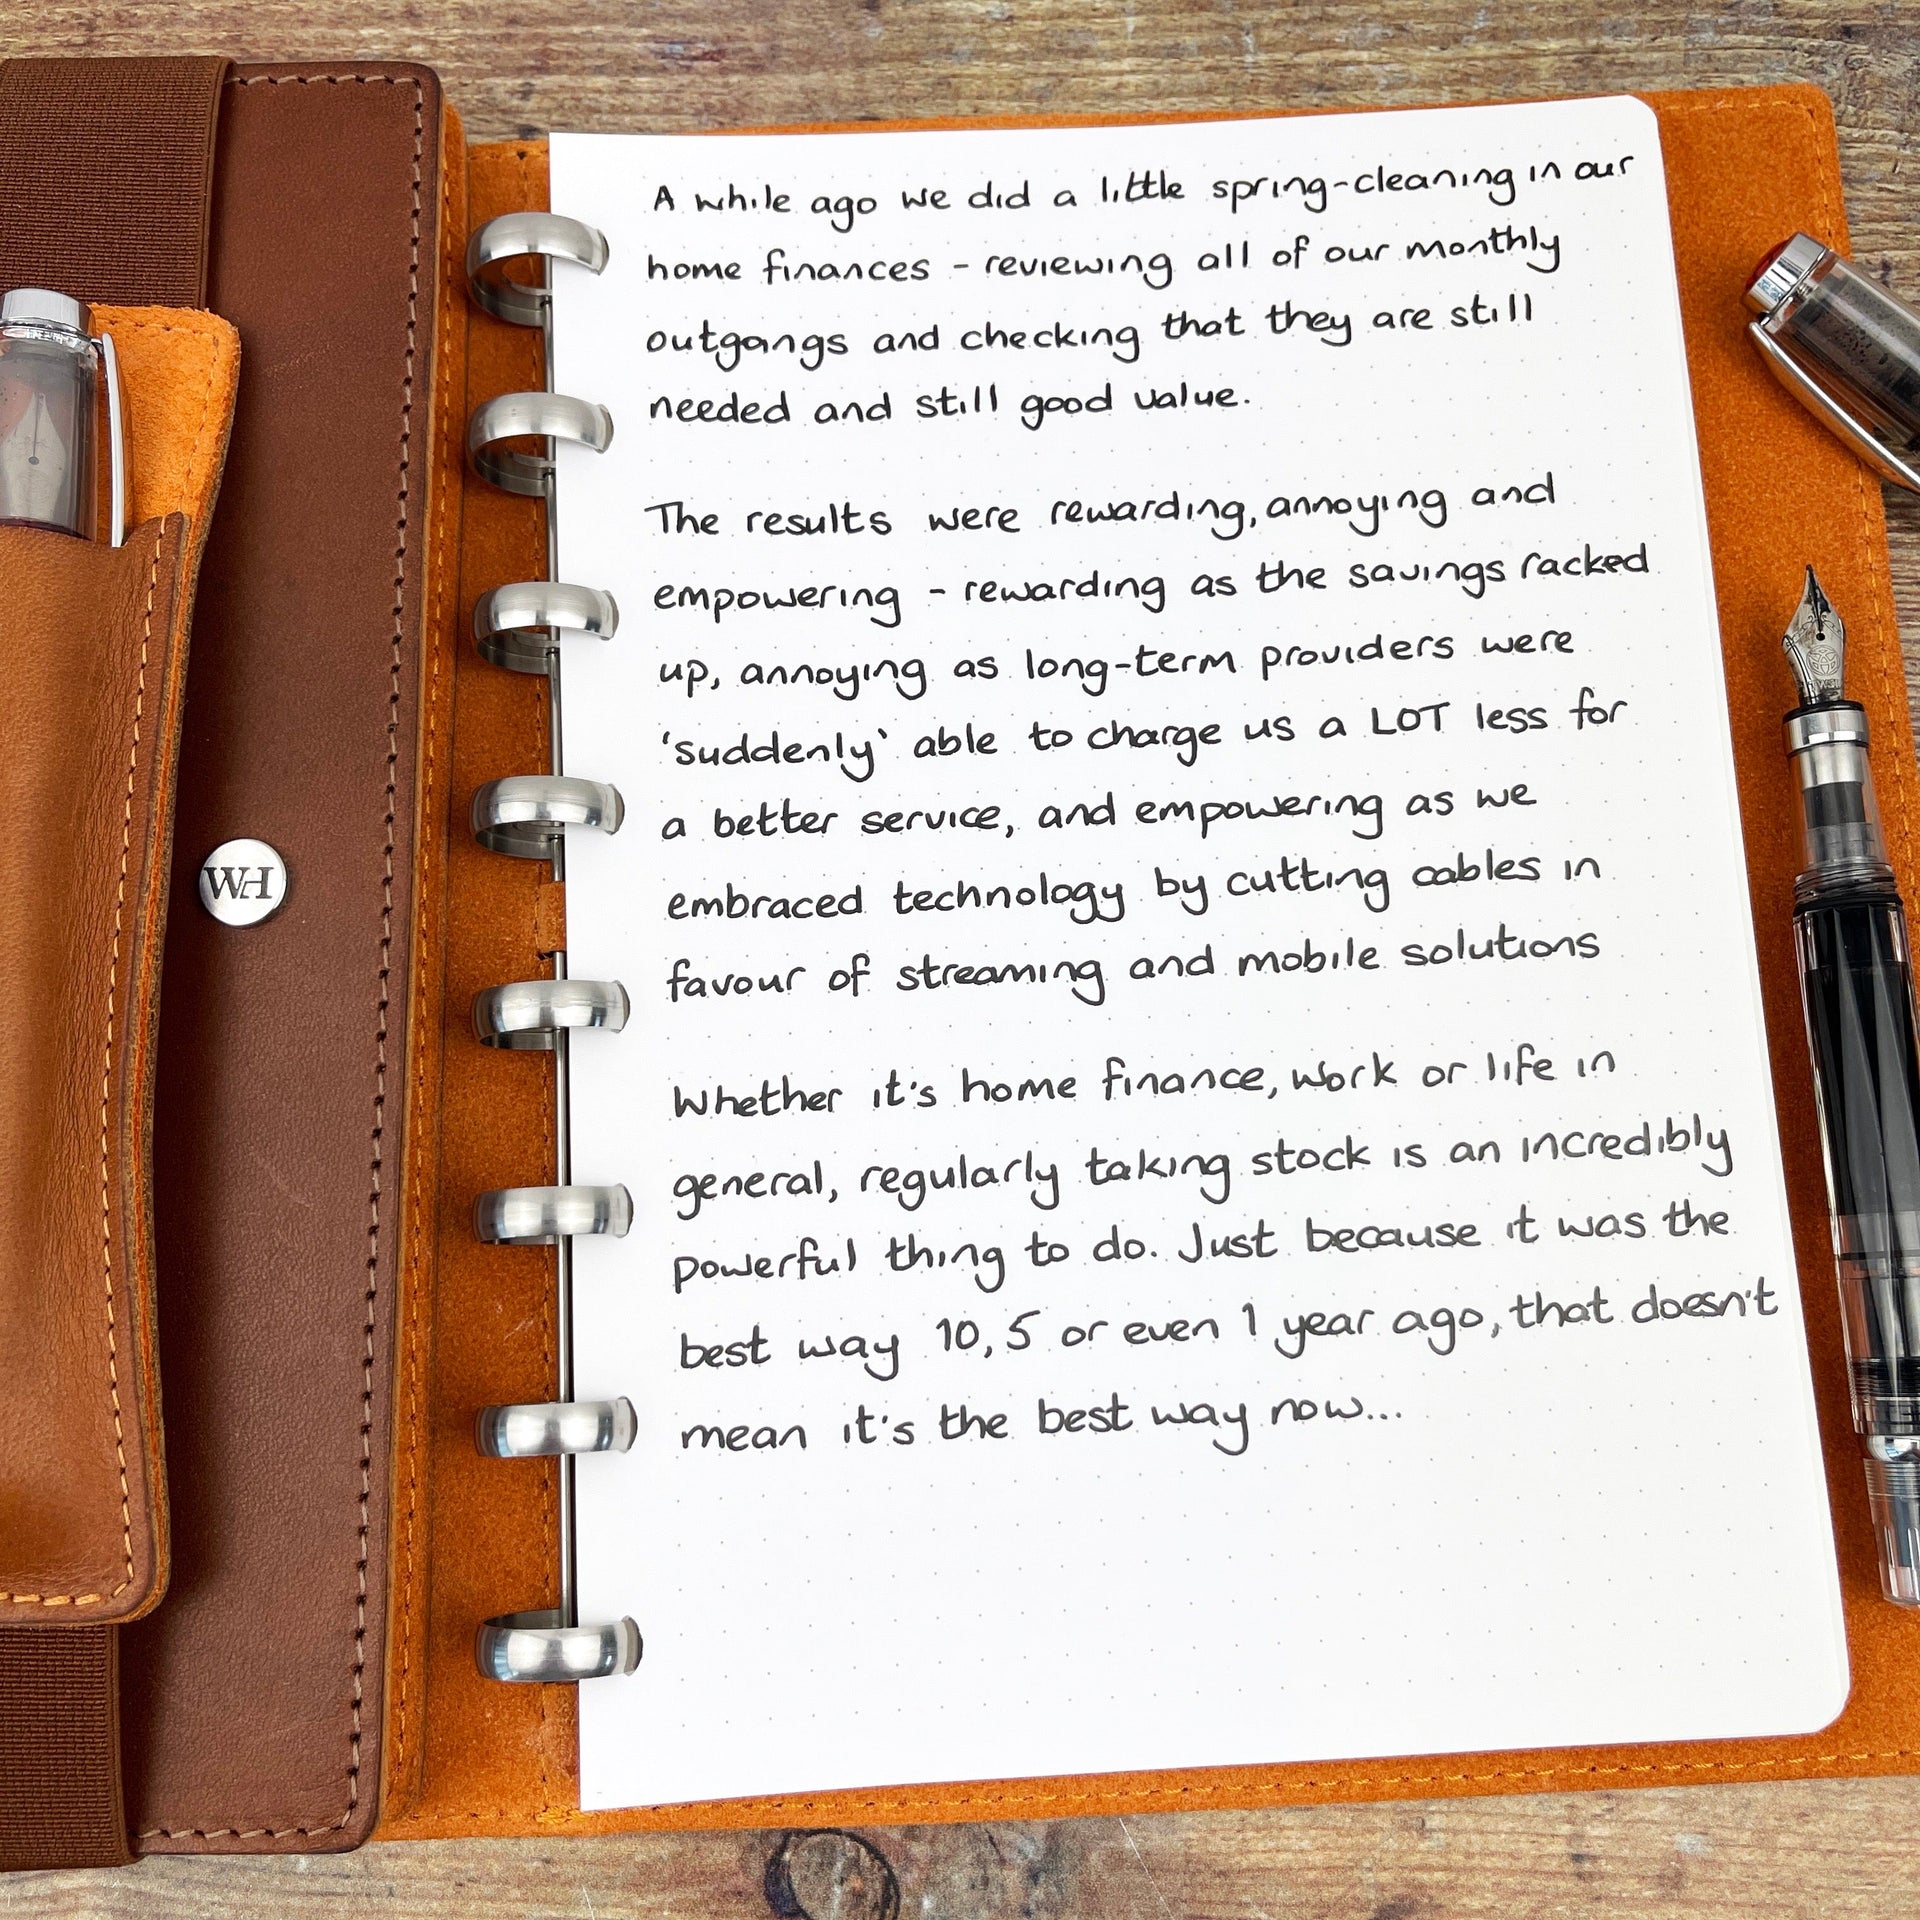 WH
A while ago we did a little spring-cleaning in our
home finances - reviewing all of our monthly
outgangs and checking that they are still
needed and still good value.
The results were rewarding, annoying and
empowering - rewarding as the savings racked
up, annoying as long-term providers were
'suddenly' able to charge us a LOT less for
a better service, and empowering as we
embraced technology by cutting cables in
favour of streaming and mobile solutions
Whether it's home finance, work or life in
general, regularly taking stock is an incredibly
powerful thing to do. Just because it was the
best way 10, 5 or even 1 year ago, that doesn't
mean it's the best way now...